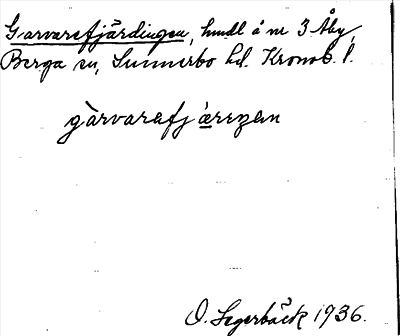 Garvarefjärdingen, hmdl å nr 3 Åby,
Berga sn, Sunnerbo hd. Kronob. l.
gàrvarafjárezan
O. Segerbäck 1936.